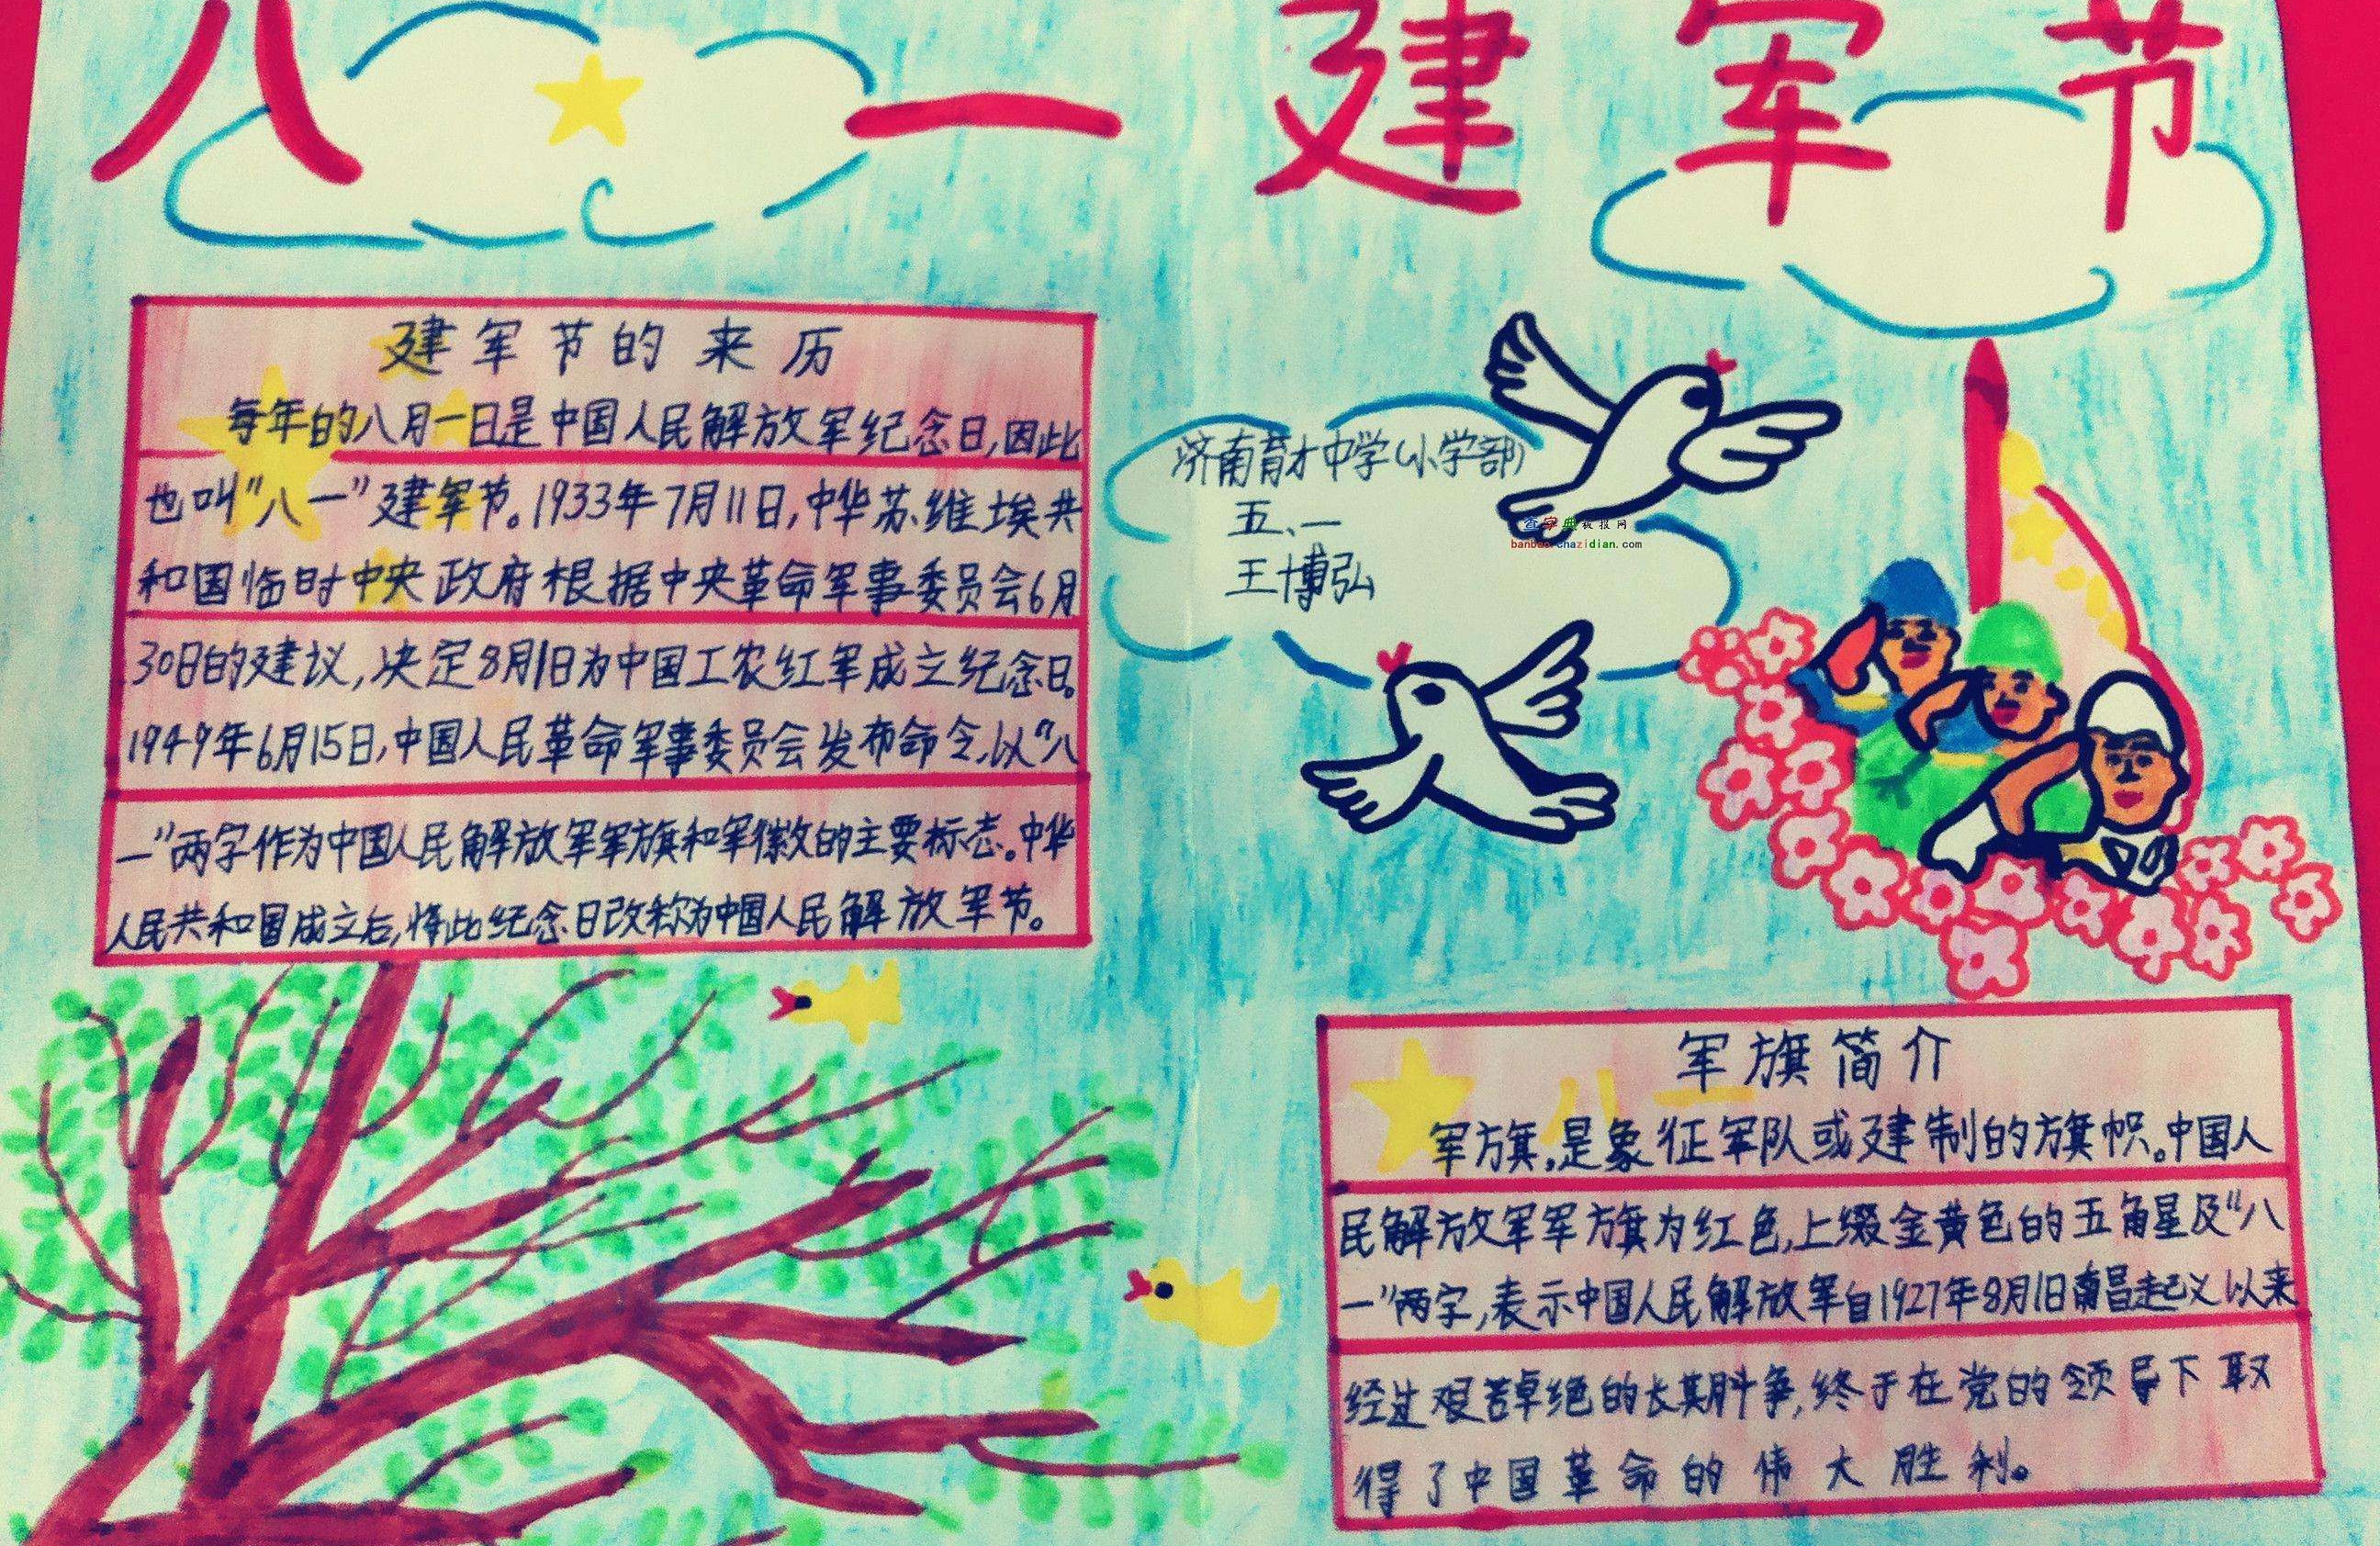 八一建军节
建军节的来历
每年的八月一日是中国人民解放军纪念日,因此
也叫“八一”建军节。1933年7月11日,中华苏维埃共
和国临时中央政府根据中央革命军事委员会6月
30日的建议,决定8月1日为中国工农红军成立纪念日。
1949年6月15日,中国人民革命军事委员会发布命令,以“八
一”两字作为中国人民解放军军旗和军徽的主要标志。中华
人民共和国成立后,将此纪念日改称为中国人民解放军节。
济南育才中学(小学部)
五、一
王博弘
查字典板报网
banbao.chazidian.com
军旗简介
八一
军旗,是象征军队或建制的旗帜。中国人
民解放军军旗为红色,上缀金黄色的五角星及“八
一”两字,表示中国人民解放军自1927年8月1日南昌起义以来
经过艰苦卓绝的长期斗争,终于在党的领导下取
得了中国革命的伟大胜利。